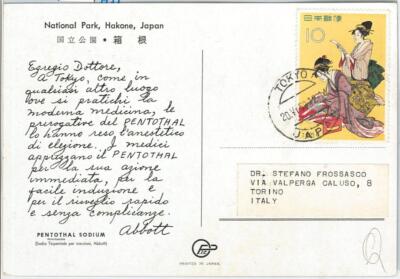 National Park, Hakone, Japan
国立公園・箱根
Egregio Dottore,
a Tokyo, come in
qualsiasi altro luogo
ove si pratichi la
moderna medicina, le
prerogative del PENTOTHAL
lo hanno reso l'anestetico
di elezione. I medici
apprezzano il PENTOTHAL
per la sua azione
immediata, per la
facile induzione e
per il risveglio rapido
e senza complicanze.
Abbott
PENTOTHAL SODIUM
(Sodio Tiopentale per iniezioni, Abbott)
日本郵便
10
TOKYO
JAP
DR. STEFANO FROSSASCO
VIA VALPERGA CALUSO, 8
TORINO
ITALY
PRINTED IN JAPAN.